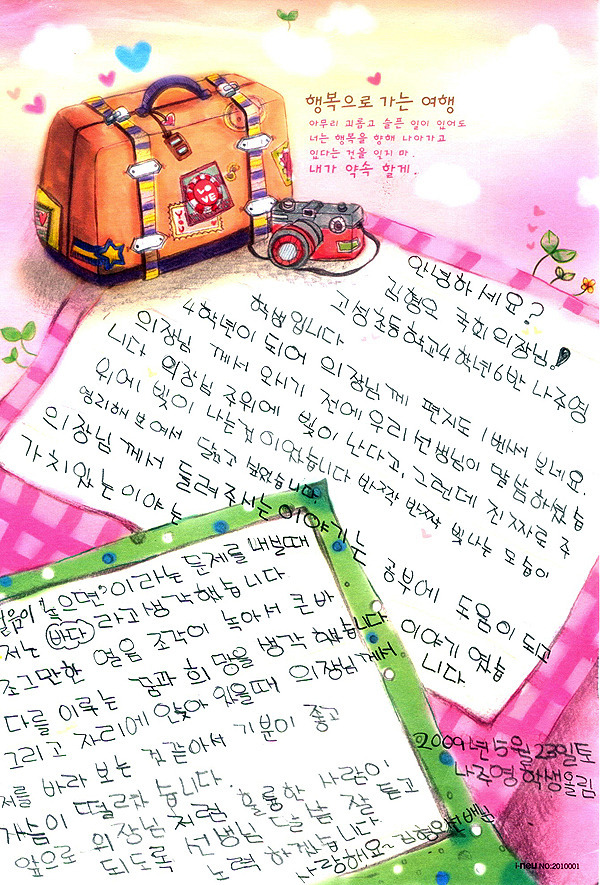 행복으로 가는 여행
아무리 괴롭고 슬픈 일이 있어도
너는 행복을 향해 나아가고
있다는 건을 잊지 마.
내가 약속 할게.
LOVE
안녕하세요?
김형오 국회의장님!
고성초등학교4학년6반 나주영
학생입니다
4학년이 되어 의장님께 편지도 1번써 보네요.
의장님 께서 오시기 전에 우리 선생님이 말씀 하셨습
니다 의장님 주위에 빛이 난다고, 그런데 진짜로 주
위에 빛이 나는 것 이었습니다 반짝 반짝 빛나는 모습이
영리해 보여서 닮고 싶었습니다.
의장님 께서 들려 주시는 이야기는 공부에 도움이 되고
가치있는 이야는 이야기 였습
니다
얼음이 녹으면 이라는 문제를 내셨때
저는 바다 라고 생각했습니다
조그만한 얼음 조각이 녹아서 큰바
다를 이루는 꿈과 희망을 생각 했습니다
그리고 자리에 앉아 있을때 의장님 께서
저를 바라 보는 것 같아서 기분이 좋고
가슴이 떨려 습니다.
앞으로 의장님처럼 훌륭한 사람이
되도록 선생님 말씀 잘 듣고
노력 하겠습니다.
사랑해요~ 김형오선배님
2009년 5월 23일 토
나주영 학생올림
i-neu NO:2010001